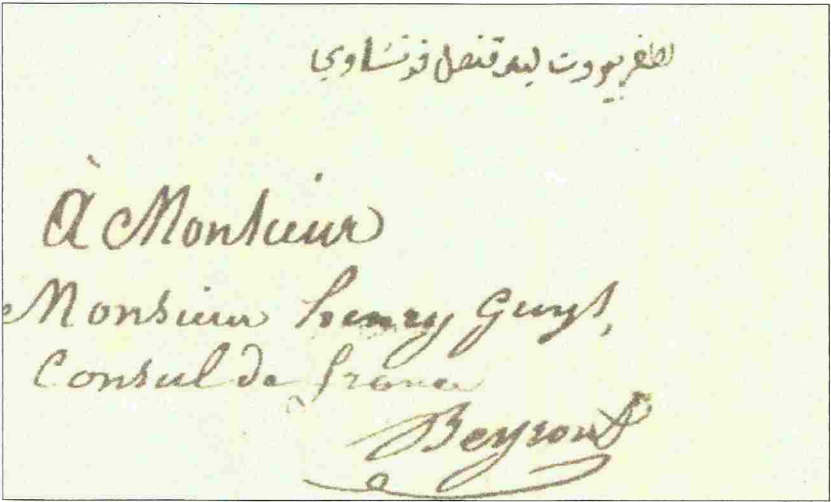 بيروت ليد قنصل فرنساوي
à Monsieur
Monsieur henry Guys,
Consul de france
Beyrout